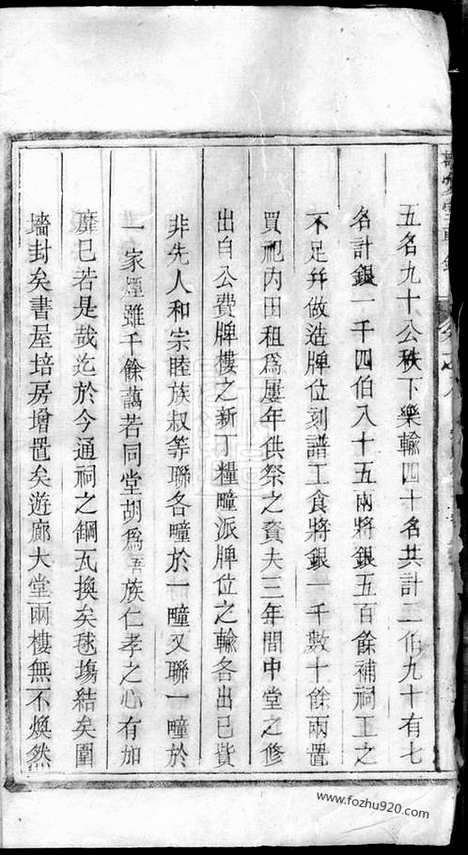 五名九十公秩下樂輸四十名共計二伯九十有七
名計銀一千四伯八十五兩將銀五百餘補祠工之
不足幷做造牌位刻譜工食將銀一千數十餘兩置
買祀內田租爲屢年供祭之資夫三年間中堂之修
出自公費牌樓之新丁糧疃派牌位之輸各出己貲
非先人和宗睦族叔等聯各疃於一疃又聯一疃於
一家煙雖千餘藹若同堂胡爲吾族仁孝之心有加
靡已若是哉迄於今通祠之鋼瓦換矣毬塲結矣圍
墻封矣書屋培房增置矣遊廊大堂兩樓無不煥然
www.fozhu920.com